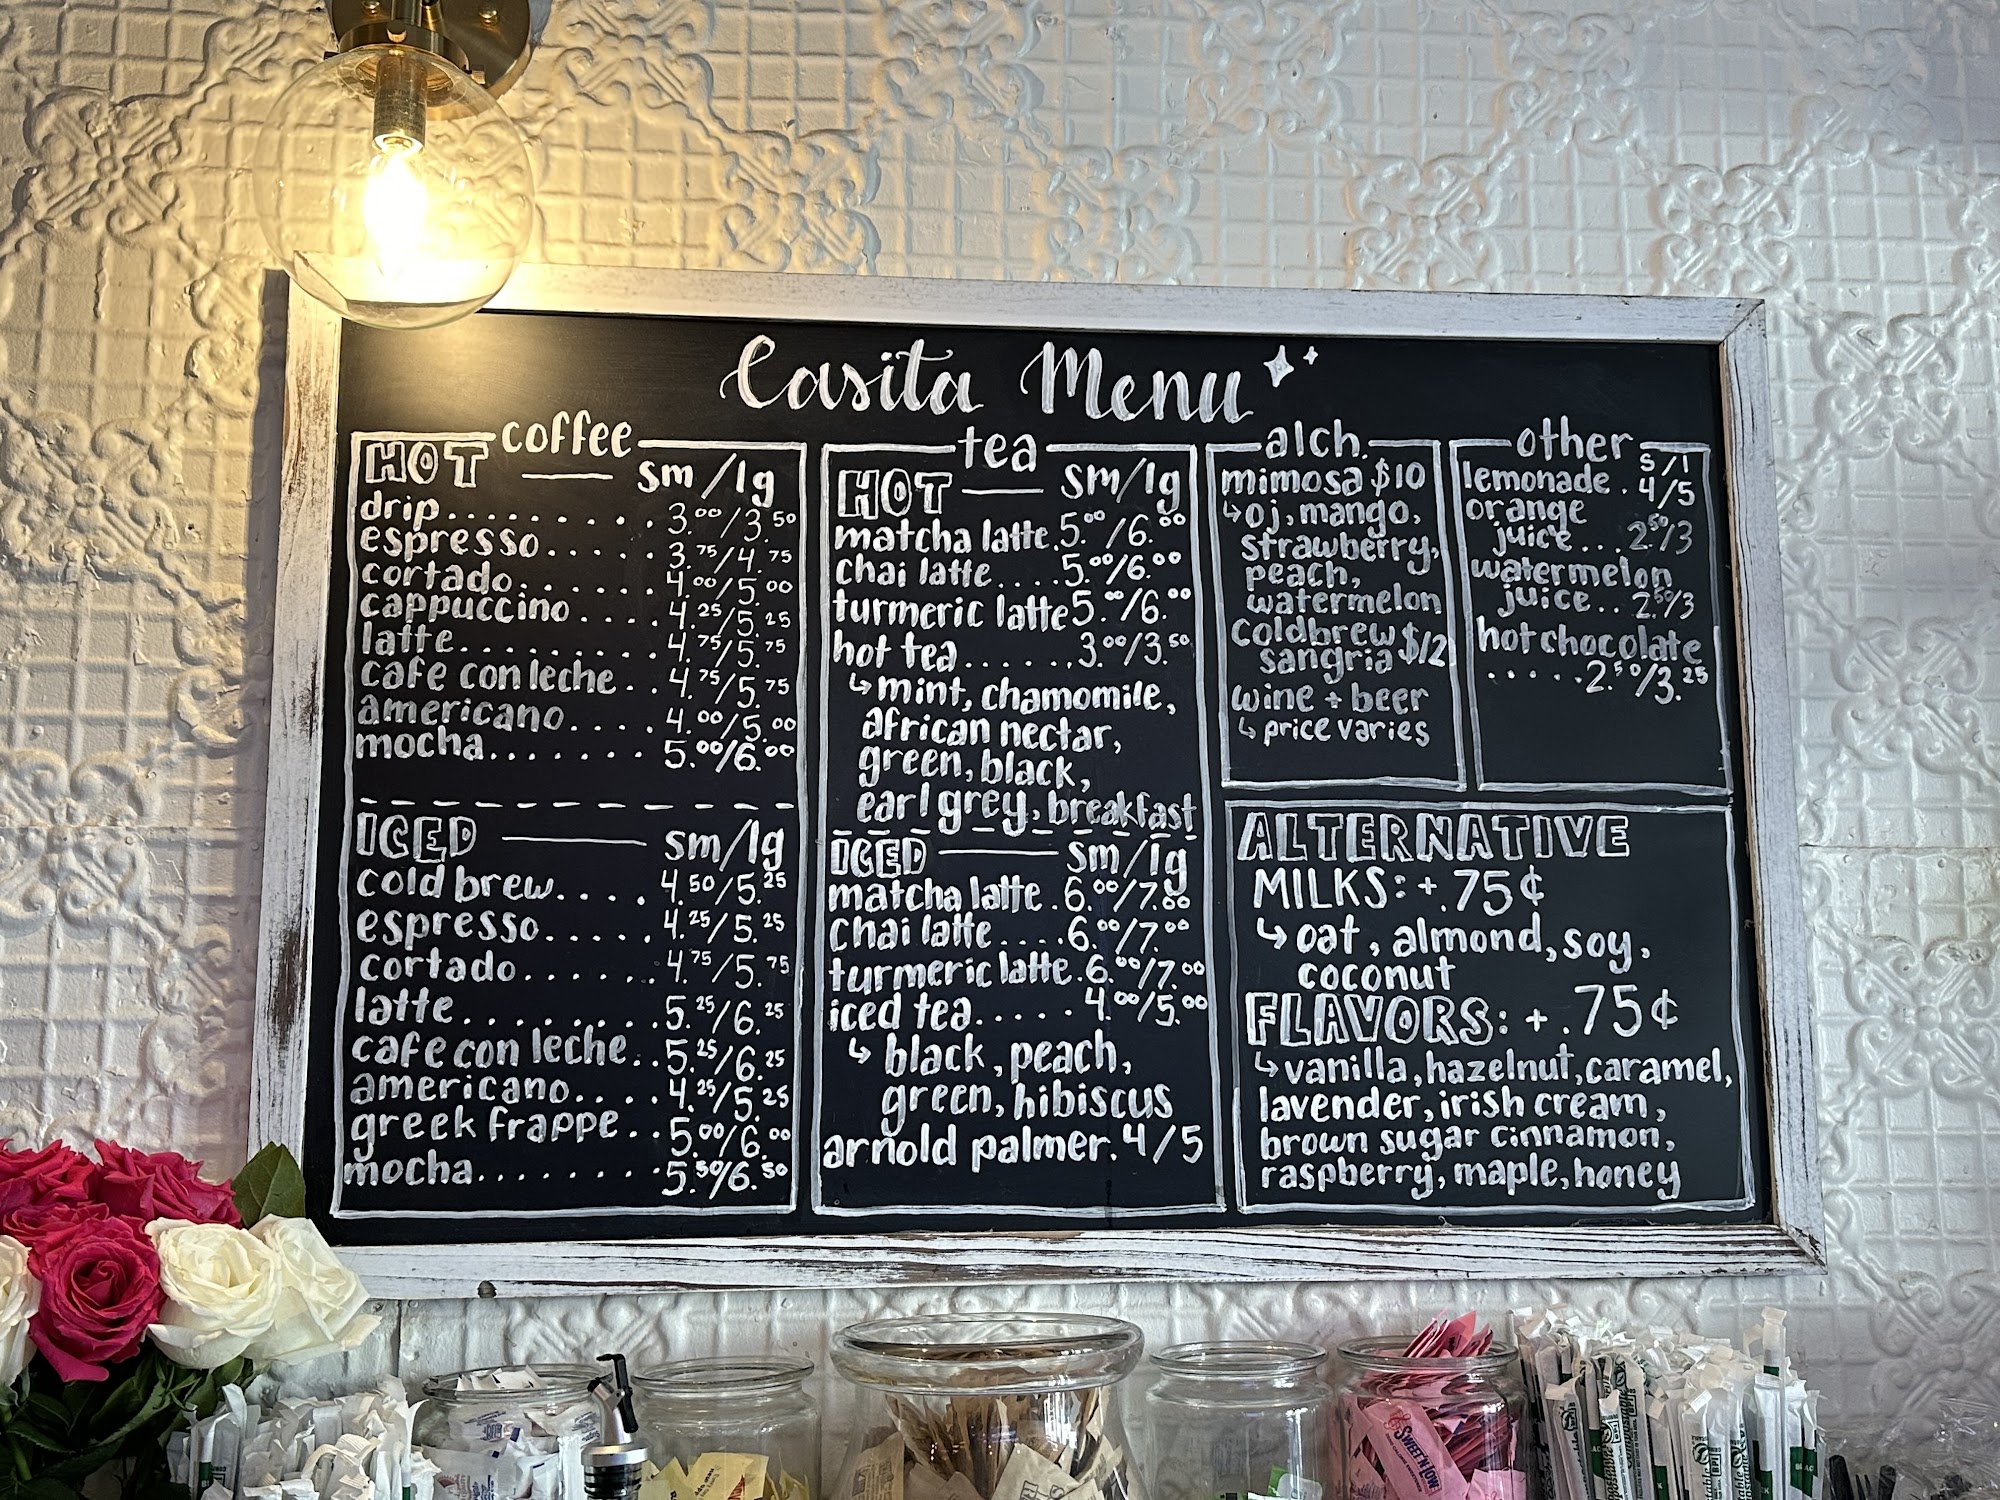 Casita Menu
coffee
HOT sm/lg
drip.........3.00/3.50
espresso.....3.75/4.75
cortado......4.00/5.00
cappuccino....4.25/5.25
latte.........4.75/5.75
cafe con leche..4.75/5.75
americano....4.00/5.00
mocha.......5.00/6.00
ICED sm/lg
cold brew....4.50/5.25
espresso.....4.25/5.25
cortado......4.75/5.75
latte.........5.25/6.25
cafe con leche..5.25/6.25
americano....4.25/5.25
greek frappe..5.00/6.00
mocha.......5.50/6.50
tea
HOT sm/lg
matcha latte.5.00/6.00
chai latte....5.00/6.00
turmeric latte 5.00/6.00
hot tea......3.00/3.50
↳ mint, chamomile,
african nectar,
green, black,
earl grey, breakfast
ICED sm/lg
matcha latte.6.00/7.00
chai latte....6.00/7.00
turmeric latte.6.00/7.00
iced tea.....4.00/5.00
↳ black, peach,
green, hibiscus
arnold palmer.4/5
alch.
mimosa $10
↳ oj, mango,
strawberry,
peach,
watermelon
coldbrew $12
sangria
wine + beer
↳ price varies
other
s/l
lemonade.4/5
orange
juice...2.50/3
watermelon
juice..2.50/3
hot chocolate
.....2.50/3.25
ALTERNATIVE
MILKS: + .75¢
↳ oat, almond, soy,
coconut
FLAVORS: + .75¢
↳ vanilla, hazelnut, caramel,
lavender, irish cream,
brown sugar cinnamon,
raspberry, maple, honey
Sweet'N Low